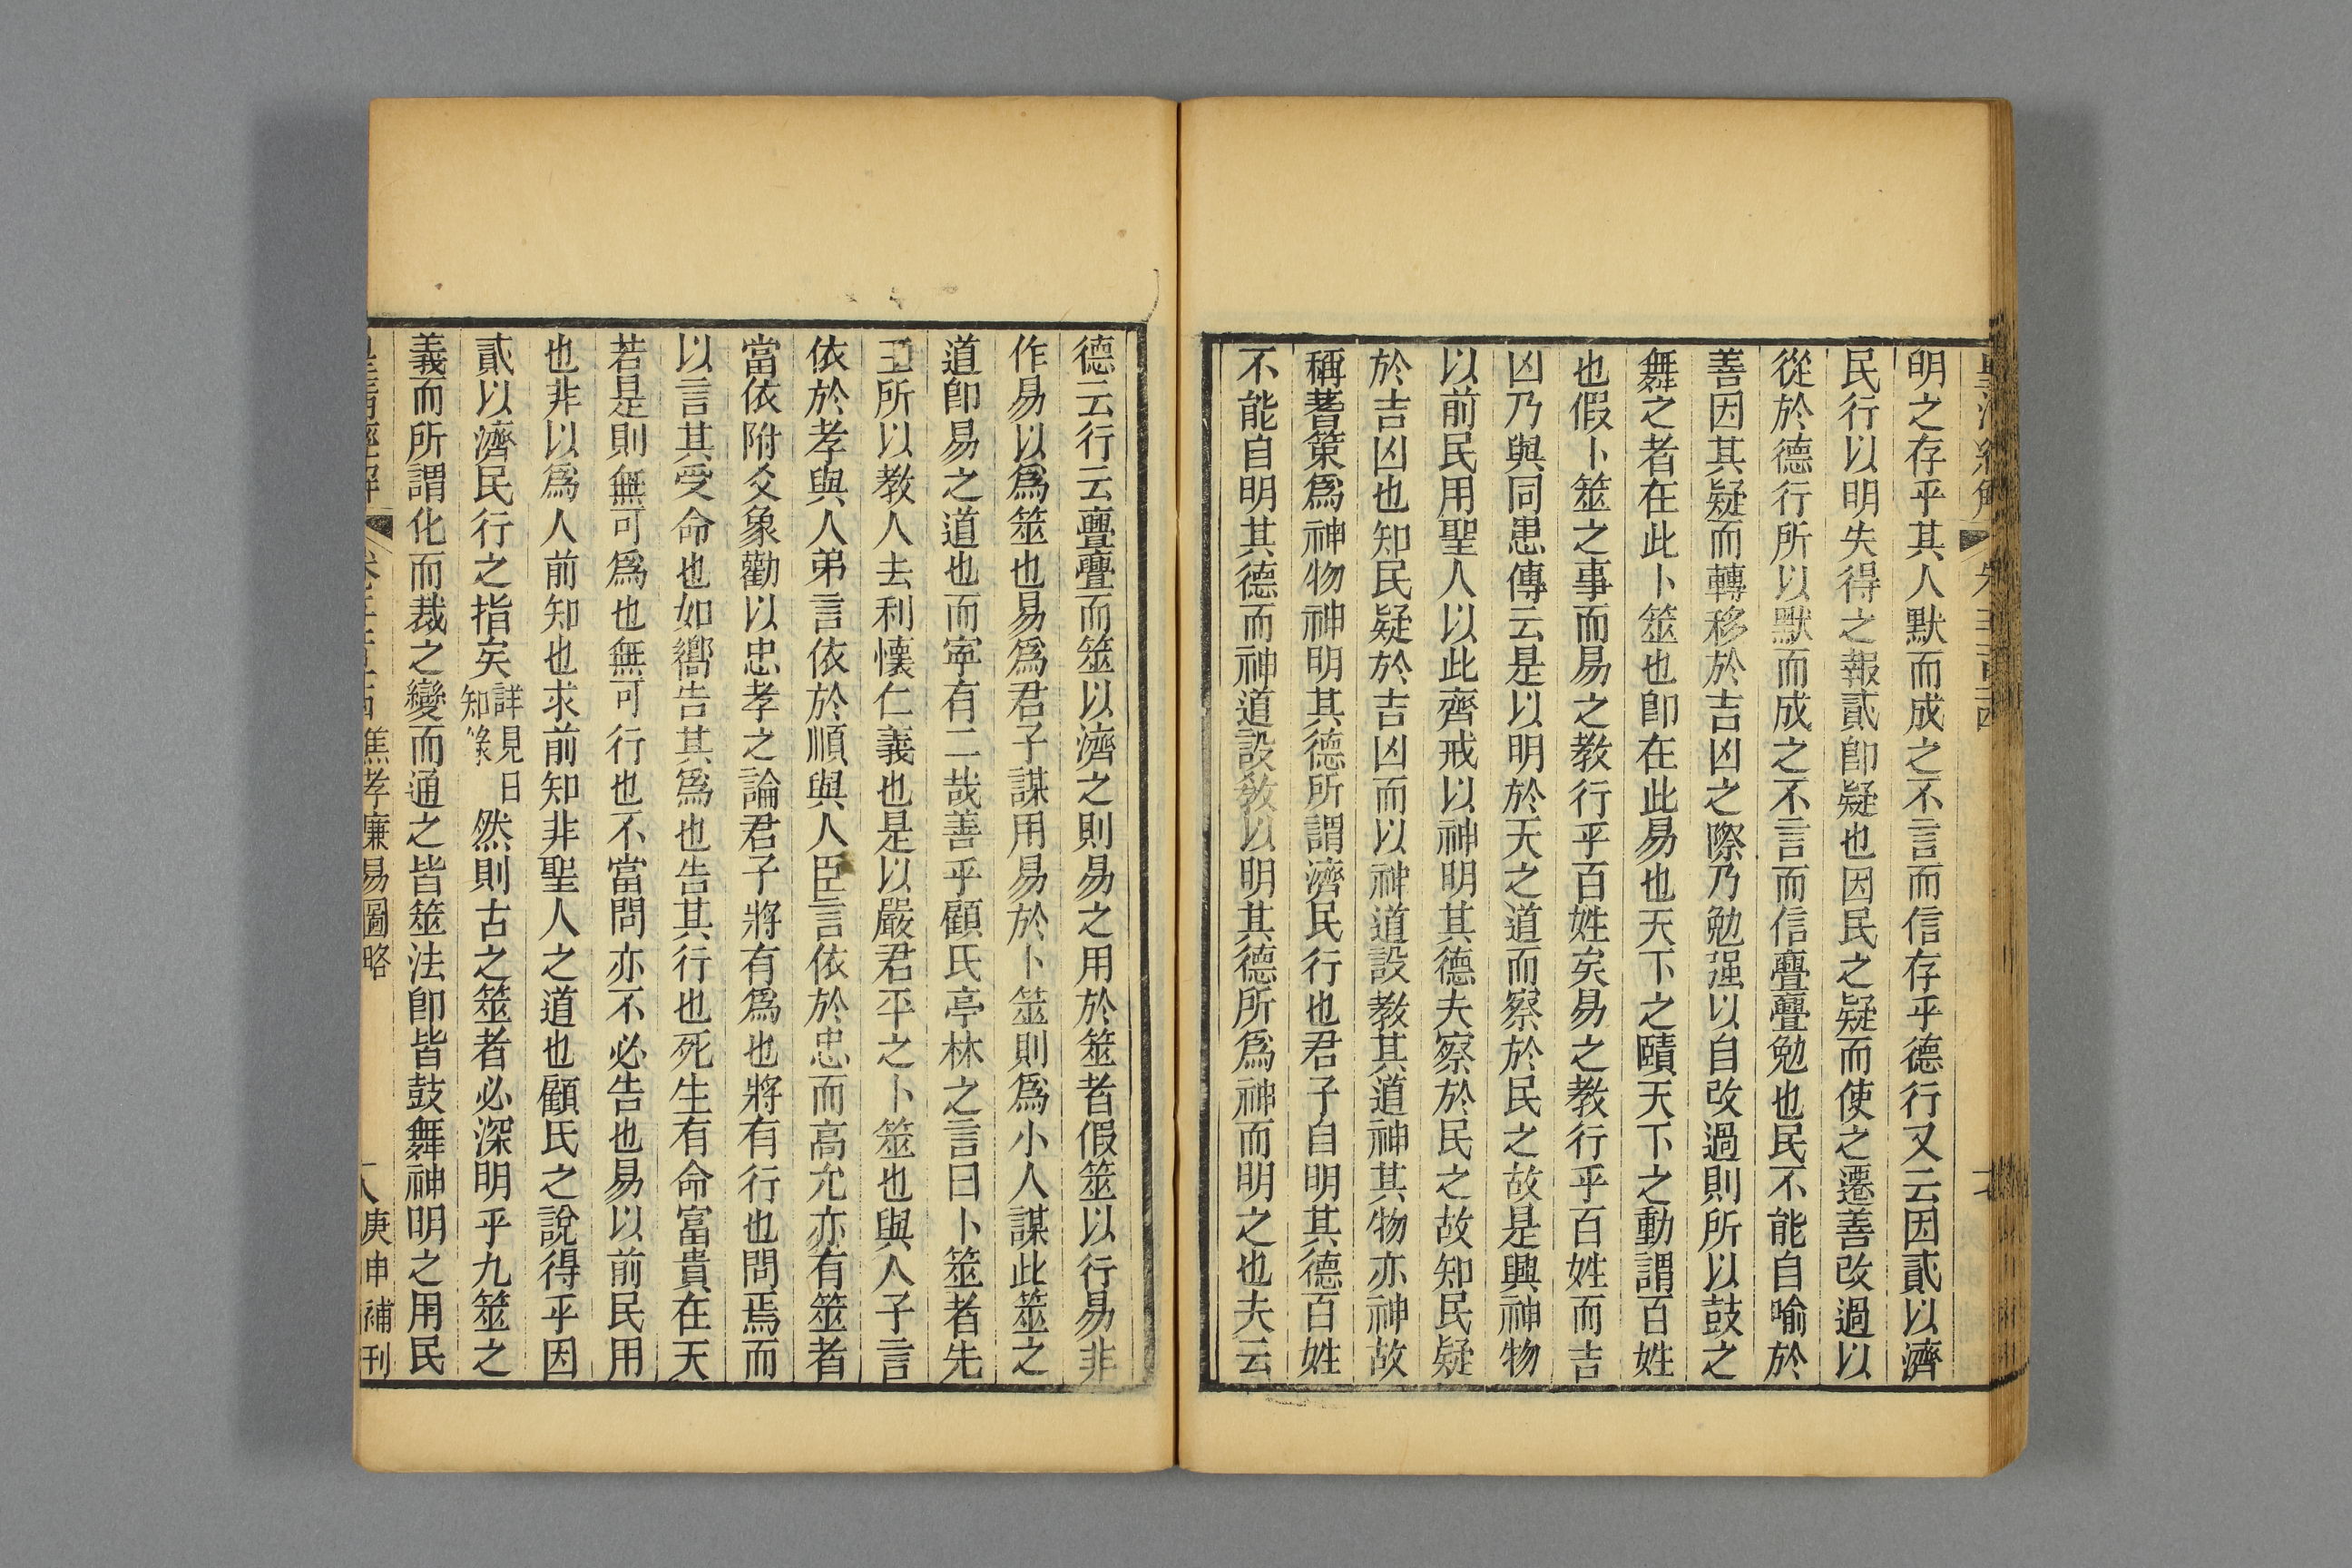 明之存乎其人默而成之不言而信存乎德行又云因貳以濟
民行以明失得之報貳卽疑也因民之疑而使之遷善改過以
從於德行所以默而成之不言而信亹亹勉也民不能自喻於
善因其疑而轉移於吉凶之際乃勉强以自改過則所以鼓之
舞之者在此卜筮也卽在此易也天下之賾天下之動謂百姓
也假卜筮之事而易之教行乎百姓矣易之教行乎百姓而吉
凶乃與同患傳云是以明於天之道而察於民之故是興神物
以前民用聖人以此齊戒以神明其德夫察於民之故知民疑
於吉凶也知民疑於吉凶而以神道設教其道神其物亦神故
稱蓍策爲神物神明其德所謂濟民行也君子自明其德百姓
不能自明其德而神道設教以明其德所爲神而明之也夫云
德云行云亹亹而筮以濟之則易之用於筮者假筮以行易非
作易以爲筮也易爲君子謀用易於卜筮則爲小人謀此筮之
道卽易之道也而寧有二哉善乎顧氏亭林之言曰卜筮者先
王所以教人去利懷仁義也是以嚴君平之卜筮也與人子言
依於孝與人弟言依於順與人臣言依於忠而高允亦有筮者
當依附爻象勸以忠孝之論君子將有爲也將有行也問焉而
以言其受命也如嚮告其爲也告其行也死生有命富貴在天
若是則無可爲也無可行也不當問亦不必告也易以前民用
也非以爲人前知也求前知非聖人之道也顧氏之說得乎因
貳以濟民行之指矣詳見日知錄然則古之筮者必深明乎九筮之
義而所謂化而裁之變而通之皆筮法卽皆鼓舞神明之用民
焦孝廉易圖略 庚申補刊